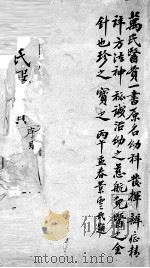 萬氏醫貫一書原名幼科發揮辨症精
祥方法神秘誠治幼之慈航兒醫之金
針也珍之寶之丙午孟春葉雲